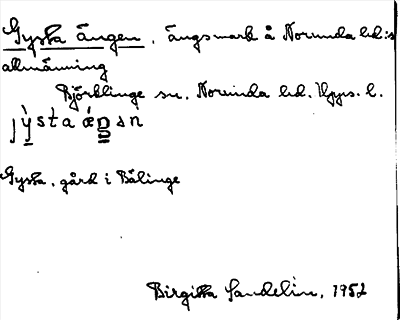 Gysta ängen, ängsmark å Norunda hd:s
allmänning
Björklinge sn. Norunda hd. Upps. l.
Gysta, gård i Bälinge
Birgitta Sandelin, 1952